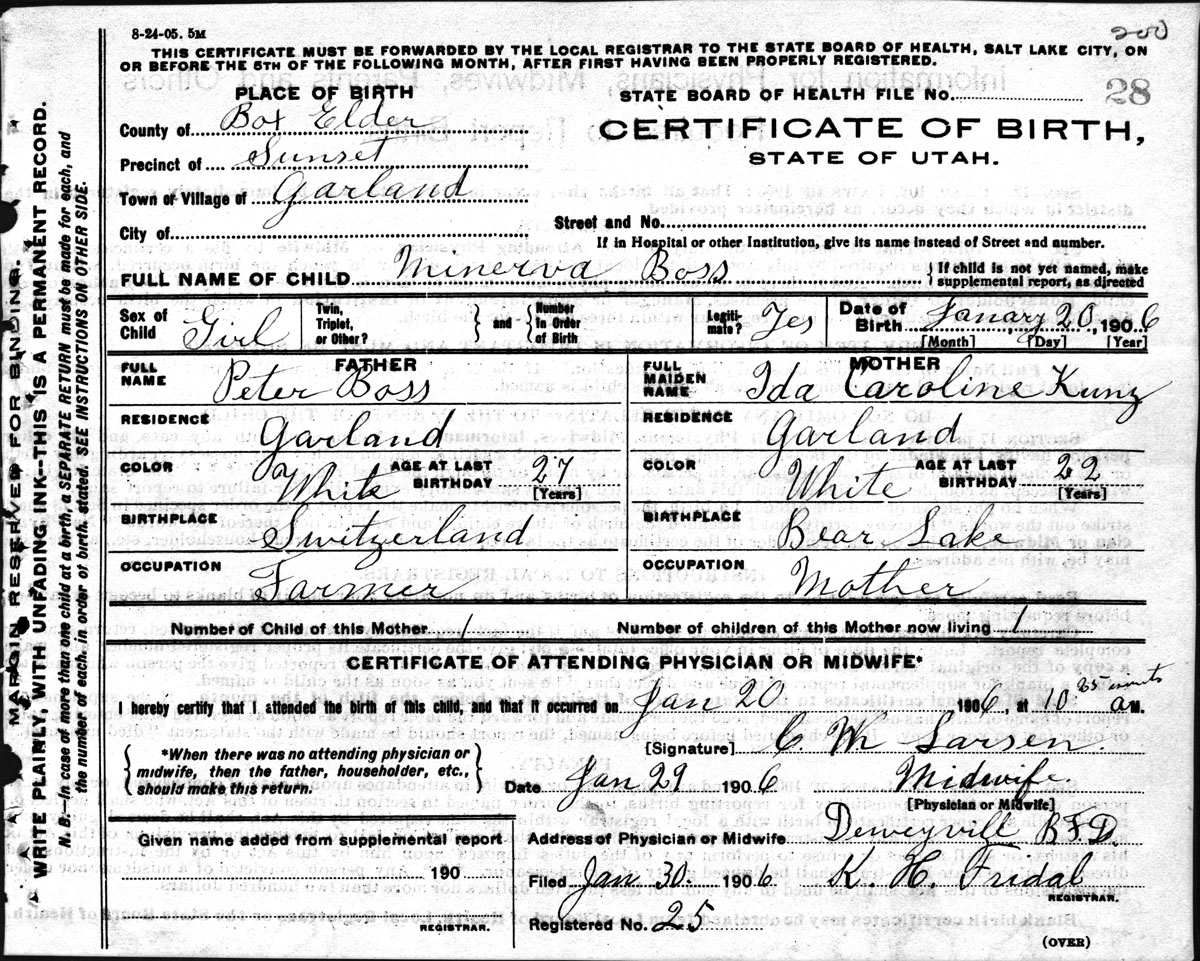 8-24-05. 5M
200
THIS CERTIFICATE MUST BE FORWARDED BY THE LOCAL REGISTRAR TO THE STATE BOARD OF HEALTH, SALT LAKE CITY, ON
OR BEFORE THE 5TH OF THE FOLLOWING MONTH, AFTER FIRST HAVING BEEN PROPERLY REGISTERED.
PLACE OF BIRTH
STATE BOARD OF HEALTH FILE No. 28
County of Box Elder
CERTIFICATE OF BIRTH,
Precinct of Sunset
STATE OF UTAH.
Town or Village of Garland
City of
Street and No.
If in Hospital or other Institution, give its name instead of Street and number.
FULL NAME OF CHILD Minerva Boss
{If child is not yet named, make
supplemental report, as directed
Sex of Child Girl
Twin, Triplet, or Other? } and { Number In Order of Birth
Legiti-mate? Yes
Date of Birth Janary 20, 1906
[Month] [Day] [Year]
FATHER
FULL NAME Peter Boss
MOTHER
FULL MAIDEN NAME Ida Caroline Kunz
RESIDENCE Garland
RESIDENCE Garland
COLOR White AGE AT LAST BIRTHDAY 27 [Years]
COLOR White AGE AT LAST BIRTHDAY 22 [Years]
BIRTHPLACE Switzerland
BIRTHPLACE Bear Lake
OCCUPATION Farmer
OCCUPATION Mother
Number of Child of this Mother 1
Number of children of this Mother now living 1
CERTIFICATE OF ATTENDING PHYSICIAN OR MIDWIFE*
I hereby certify that I attended the birth of this child, and that it occurred on Jan 20 1906, at 10 25 minuts a M.
{*When there was no attending physician or
midwife, then the father, householder, etc.,
should make this return.}
[Signature] C. M Larsen.
Date Jan 29 1906 Midwife.
[Physician or Midwife]
Given name added from supplemental report
190
REGISTRAR.
Address of Physician or Midwife Deweyvill RFD.
Filed Jan 30. 1906 K. H. Fridal
REGISTRAR.
Registered No. 25
(OVER)
MARGIN RESERVED FOR BINDING.
WRITE PLAINLY, WITH UNFADING INK--THIS IS A PERMANENT RECORD.
N. B.--In case of more than one child at a birth, a SEPARATE RETURN must be made for each, and
the number of each, in order of birth, stated. SEE INSTRUCTIONS ON OTHER SIDE.